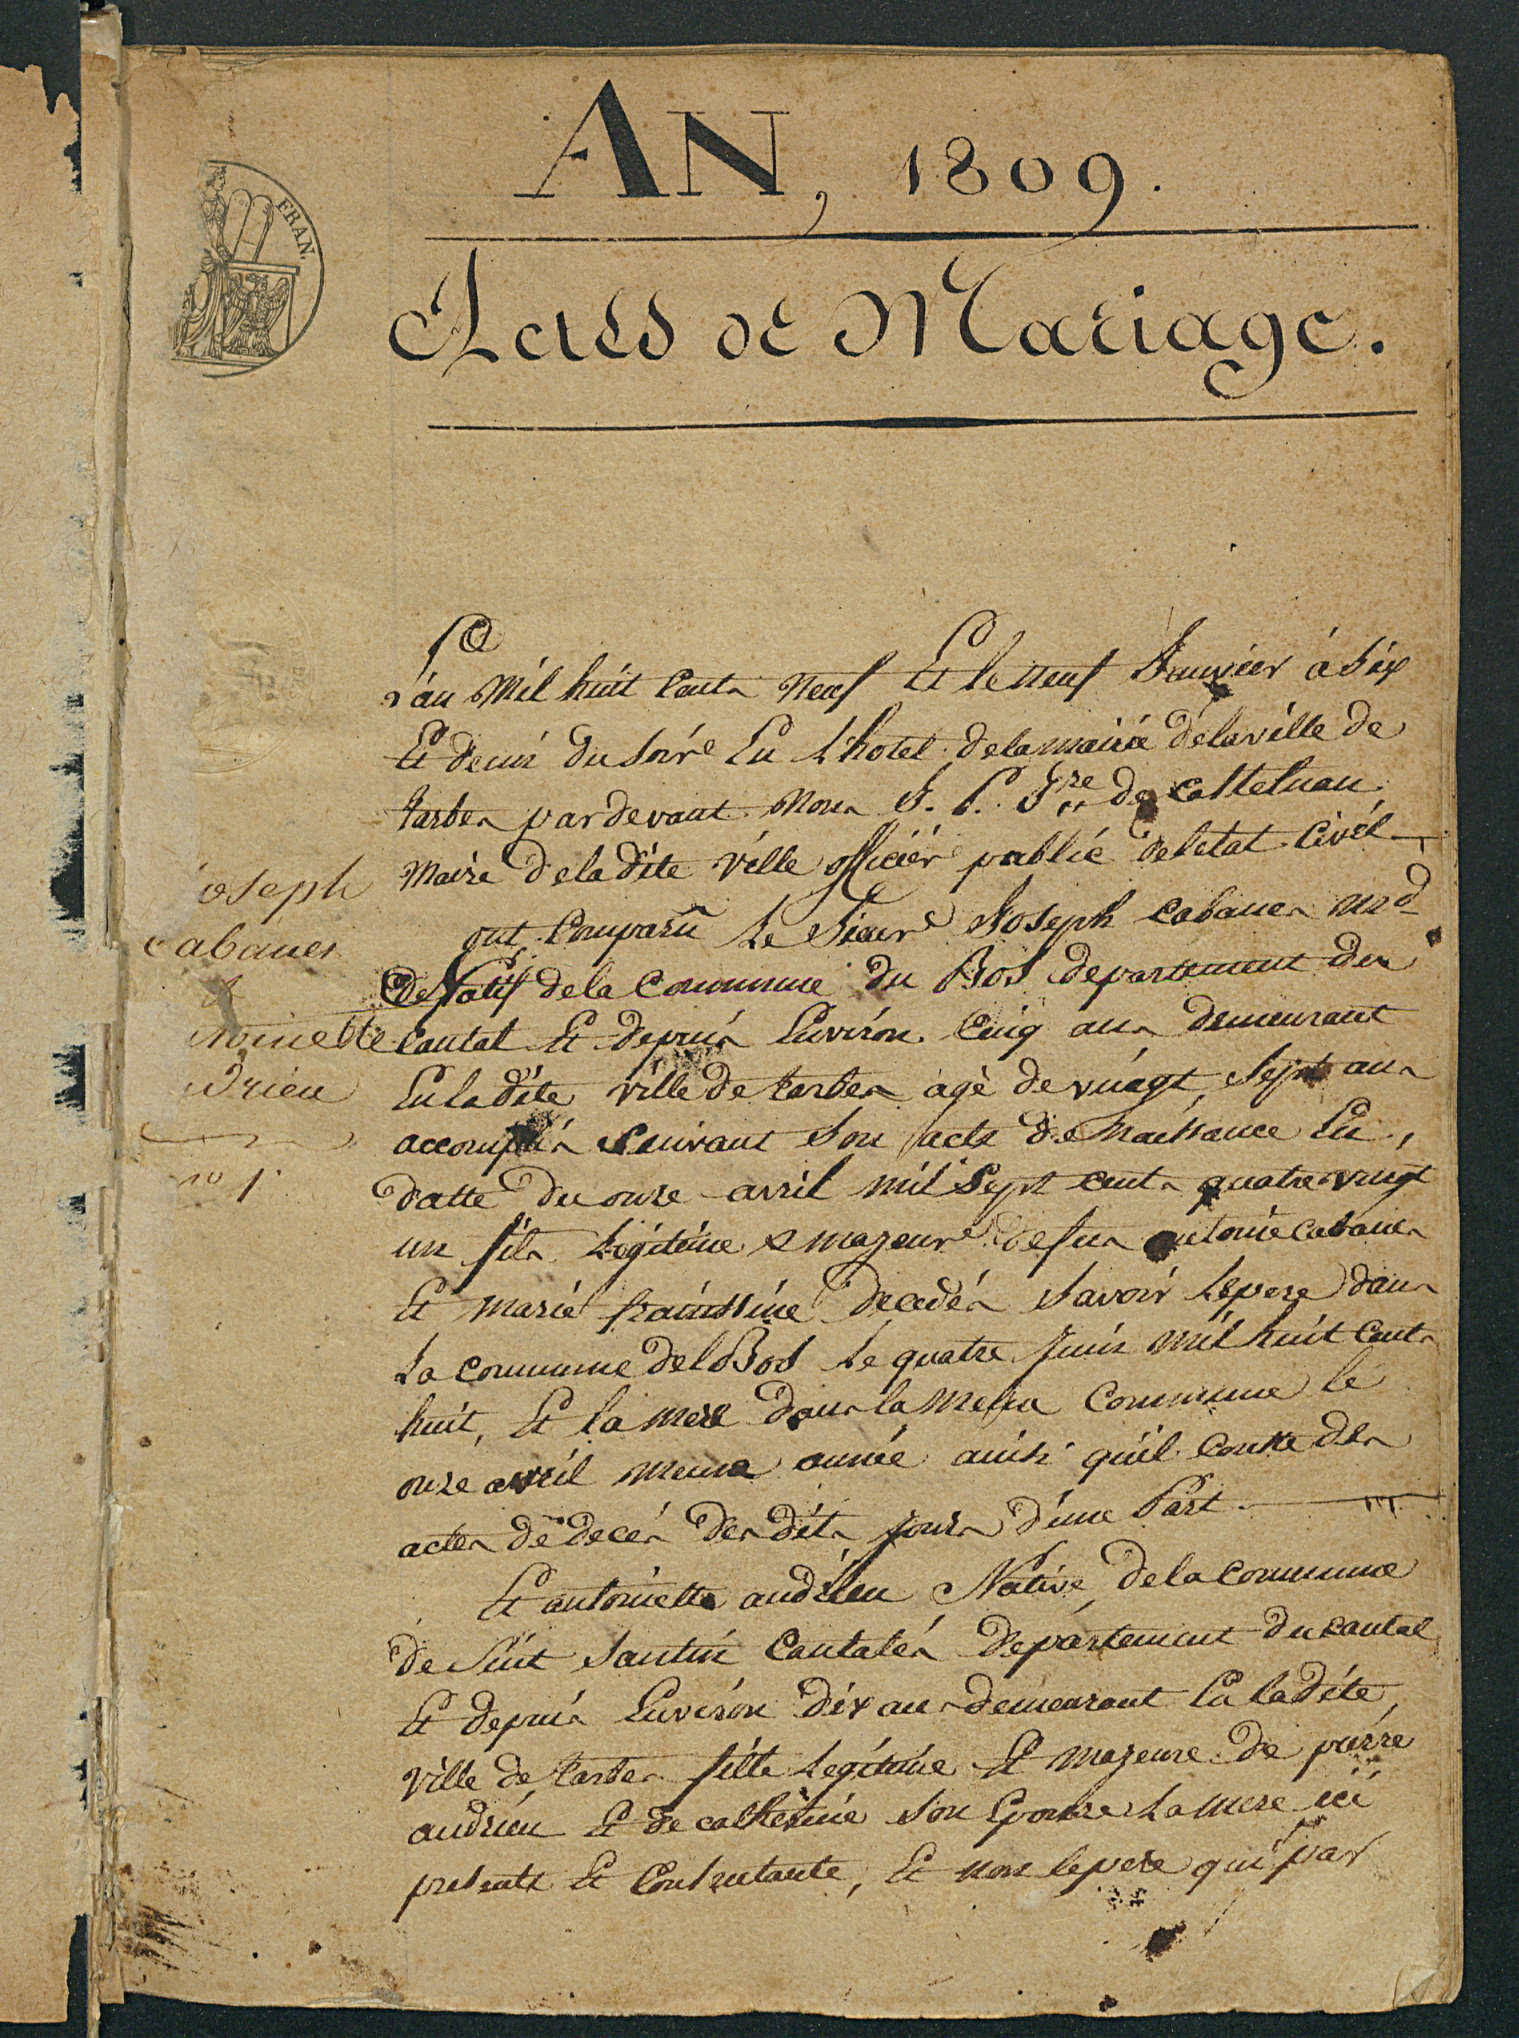 AN, 1809.
FRAN.
Actes de Mariage.
L'an Mil huit Cents Neuf Et le neuf Janvier à Six
Et demi du soire En L'hotel delamairie delaville de
tarbes pardevant Nous J. P. Fre de Castelnau
Maire deladite Ville officiér public deletat Civil
ont Comparu Le Sieur Joseph Cabanes md
Natif dela Commune du Bos departement du
Cantal Et depuis Environ Cinq ans demeurant
Enladite ville de tarbes agé de vingt Sept ans
accomplis Suivant Son acte de Naissance En
datte du onze avril mil Sept cents quatre vingt
un fils Légitime & majeure defus antoine Cabanes
Et Marie fraissine decedés Savoir Lepere dans
La Commune delBos Le quatre Juin Mil huit Cents
huit, Et la Mere dans la Meme Commune le
onze avril Meme année ainsi qu'il Conste des
actes de decés desdits jours d'une Part
Et antoinette andrieu Native dela Commune
de Sint Santin Cantalés département du Cantal
Et depuis Environ dix ans demeurant En ladite
Ville de tarbes fille Légitime Et Majeure de pierre
andrieu Et de catherine Son Epouse La mere ici
presente Et Consentante, Et non lepere qui par
joseph
cabanes
et
toinette
drieu
no 1